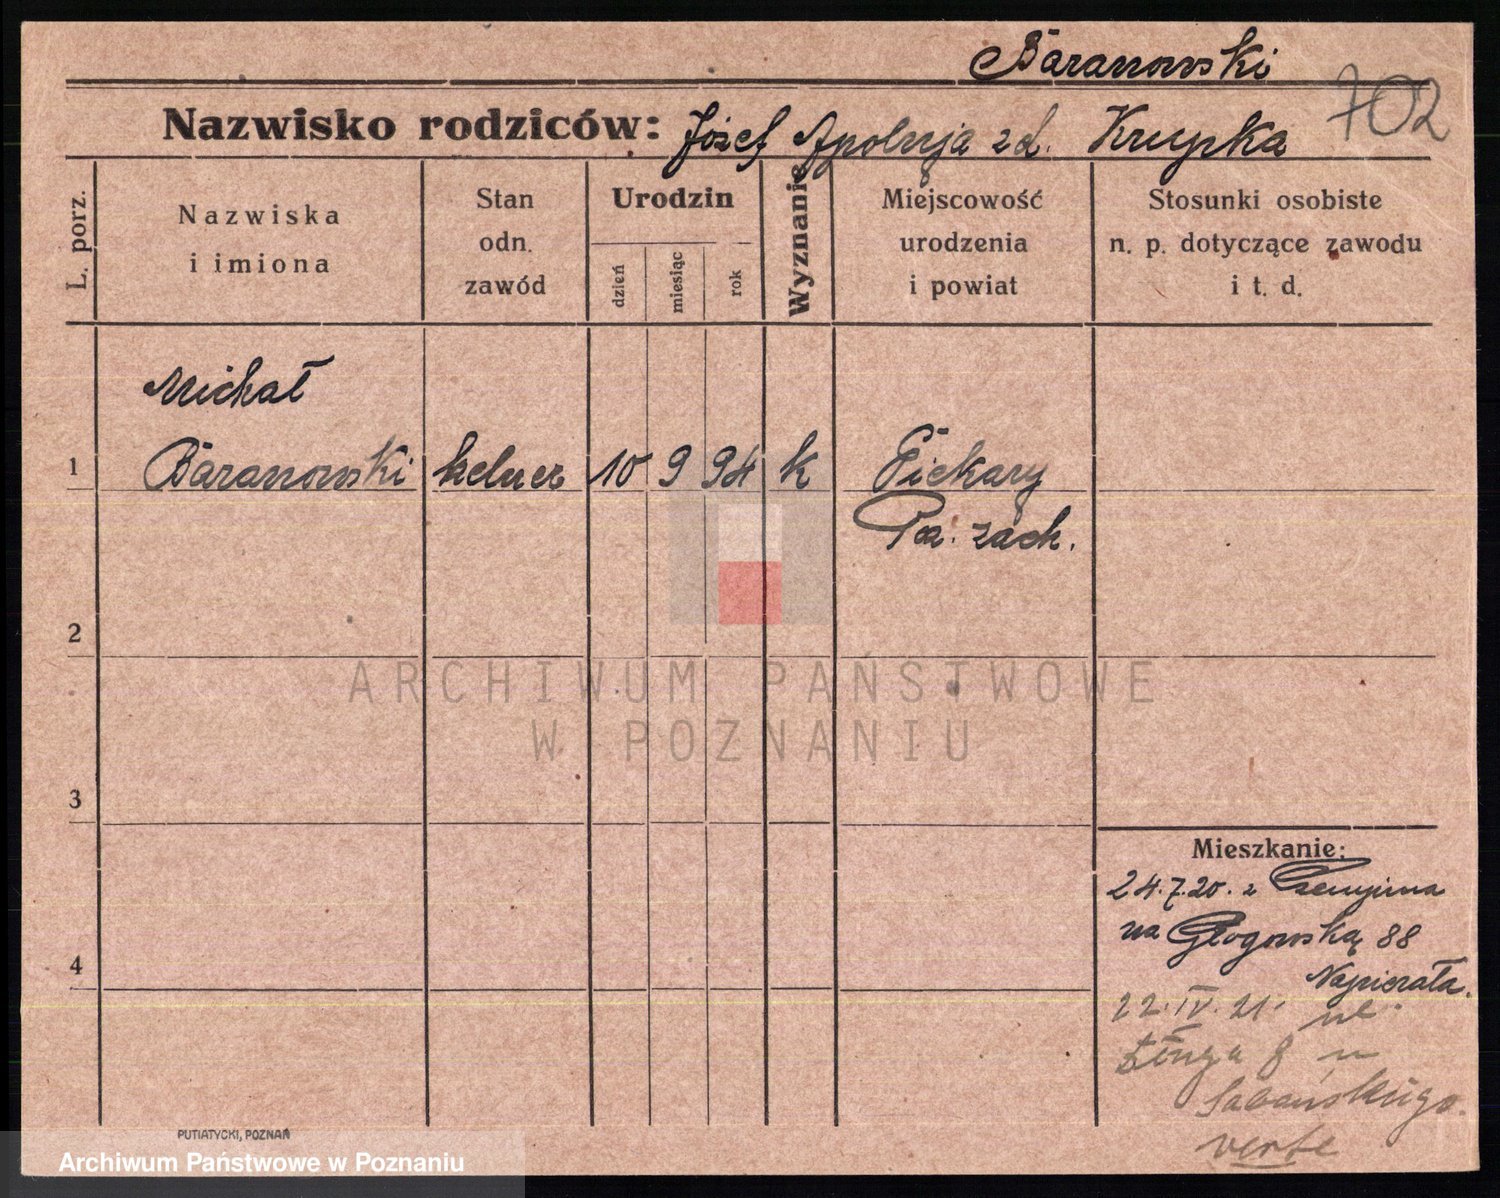 Baranowski
702
Nazwisko rodziców: Józef Apolunja zd. Krupka
L. porz.
Nazwiska i imiona
Stan odn. zawód
Urodzin
dzień
miesiąc
rok
Wyznanie
Miejscowość urodzenia i powiat
Stosunki osobiste n. p. dotyczące zawodu i t. d.
Michał
1 Baranowski kelner 10 9 94 k Piekary
Po. zach.
2
3
4
Mieszkanie:
24.7.20. z
na Głogowską 88
Napierała.
22.IV.21. ul.
8 u
verte
ARCHIWUM PAŃSTWOWE
W POZNANIU
PUTIATYCKI, POZNAŃ
Archiwum Państwowe w Poznaniu